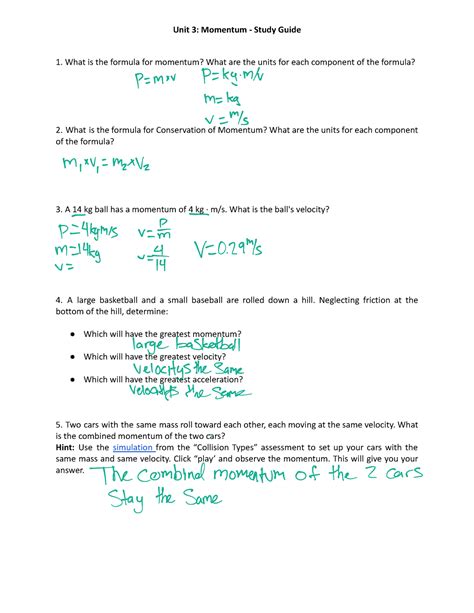 Unit 3: Momentum - Study Guide
1. What is the formula for momentum? What are the units for each component of the formula?
P=mxv P=kg·m/s
m=kg
v=m/s
2. What is the formula for Conservation of Momentum? What are the units for each component
of the formula?
m₁xV₁=m₂xV₂
3. A 14 kg ball has a momentum of 4 kg · m/s. What is the ball's velocity?
P=4kgm/s v=P/m
m=14kg v=4/14 V=0.29m/s
v=
4. A large basketball and a small baseball are rolled down a hill. Neglecting friction at the
bottom of the hill, determine:
● Which will have the greatest momentum?
large basketball
● Which will have the greatest velocity?
velocitys the same
● Which will have the greatest acceleration?
velocitys the same
5. Two cars with the same mass roll toward each other, each moving at the same velocity. What
is the combined momentum of the two cars?
Hint: Use the simulation from the “Collision Types” assessment to set up your cars with the
same mass and same velocity. Click “play’ and observe the momentum. This will give you your
answer. The combind momentum of the 2 cars
Stay the same